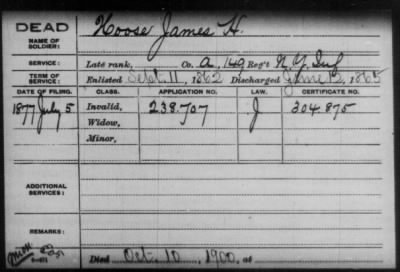 DEAD
NAME OF SOLDIER: Hoose, James H.
SERVICE: Late rank, Co. A, 149 Reg't N.Y. Inf
TERM OF SERVICE: Enlisted Sept. 11, 1862 Discharged June 12, 1865
DATE OF FILING. CLASS. APPLICATION NO. LAW. CERTIFICATE NO.
1877 July 5 Invalid, 238.707 J 304.875
Widow,
Minor,
ADDITIONAL SERVICES:
REMARKS:
Died Oct. 10, 1900, at